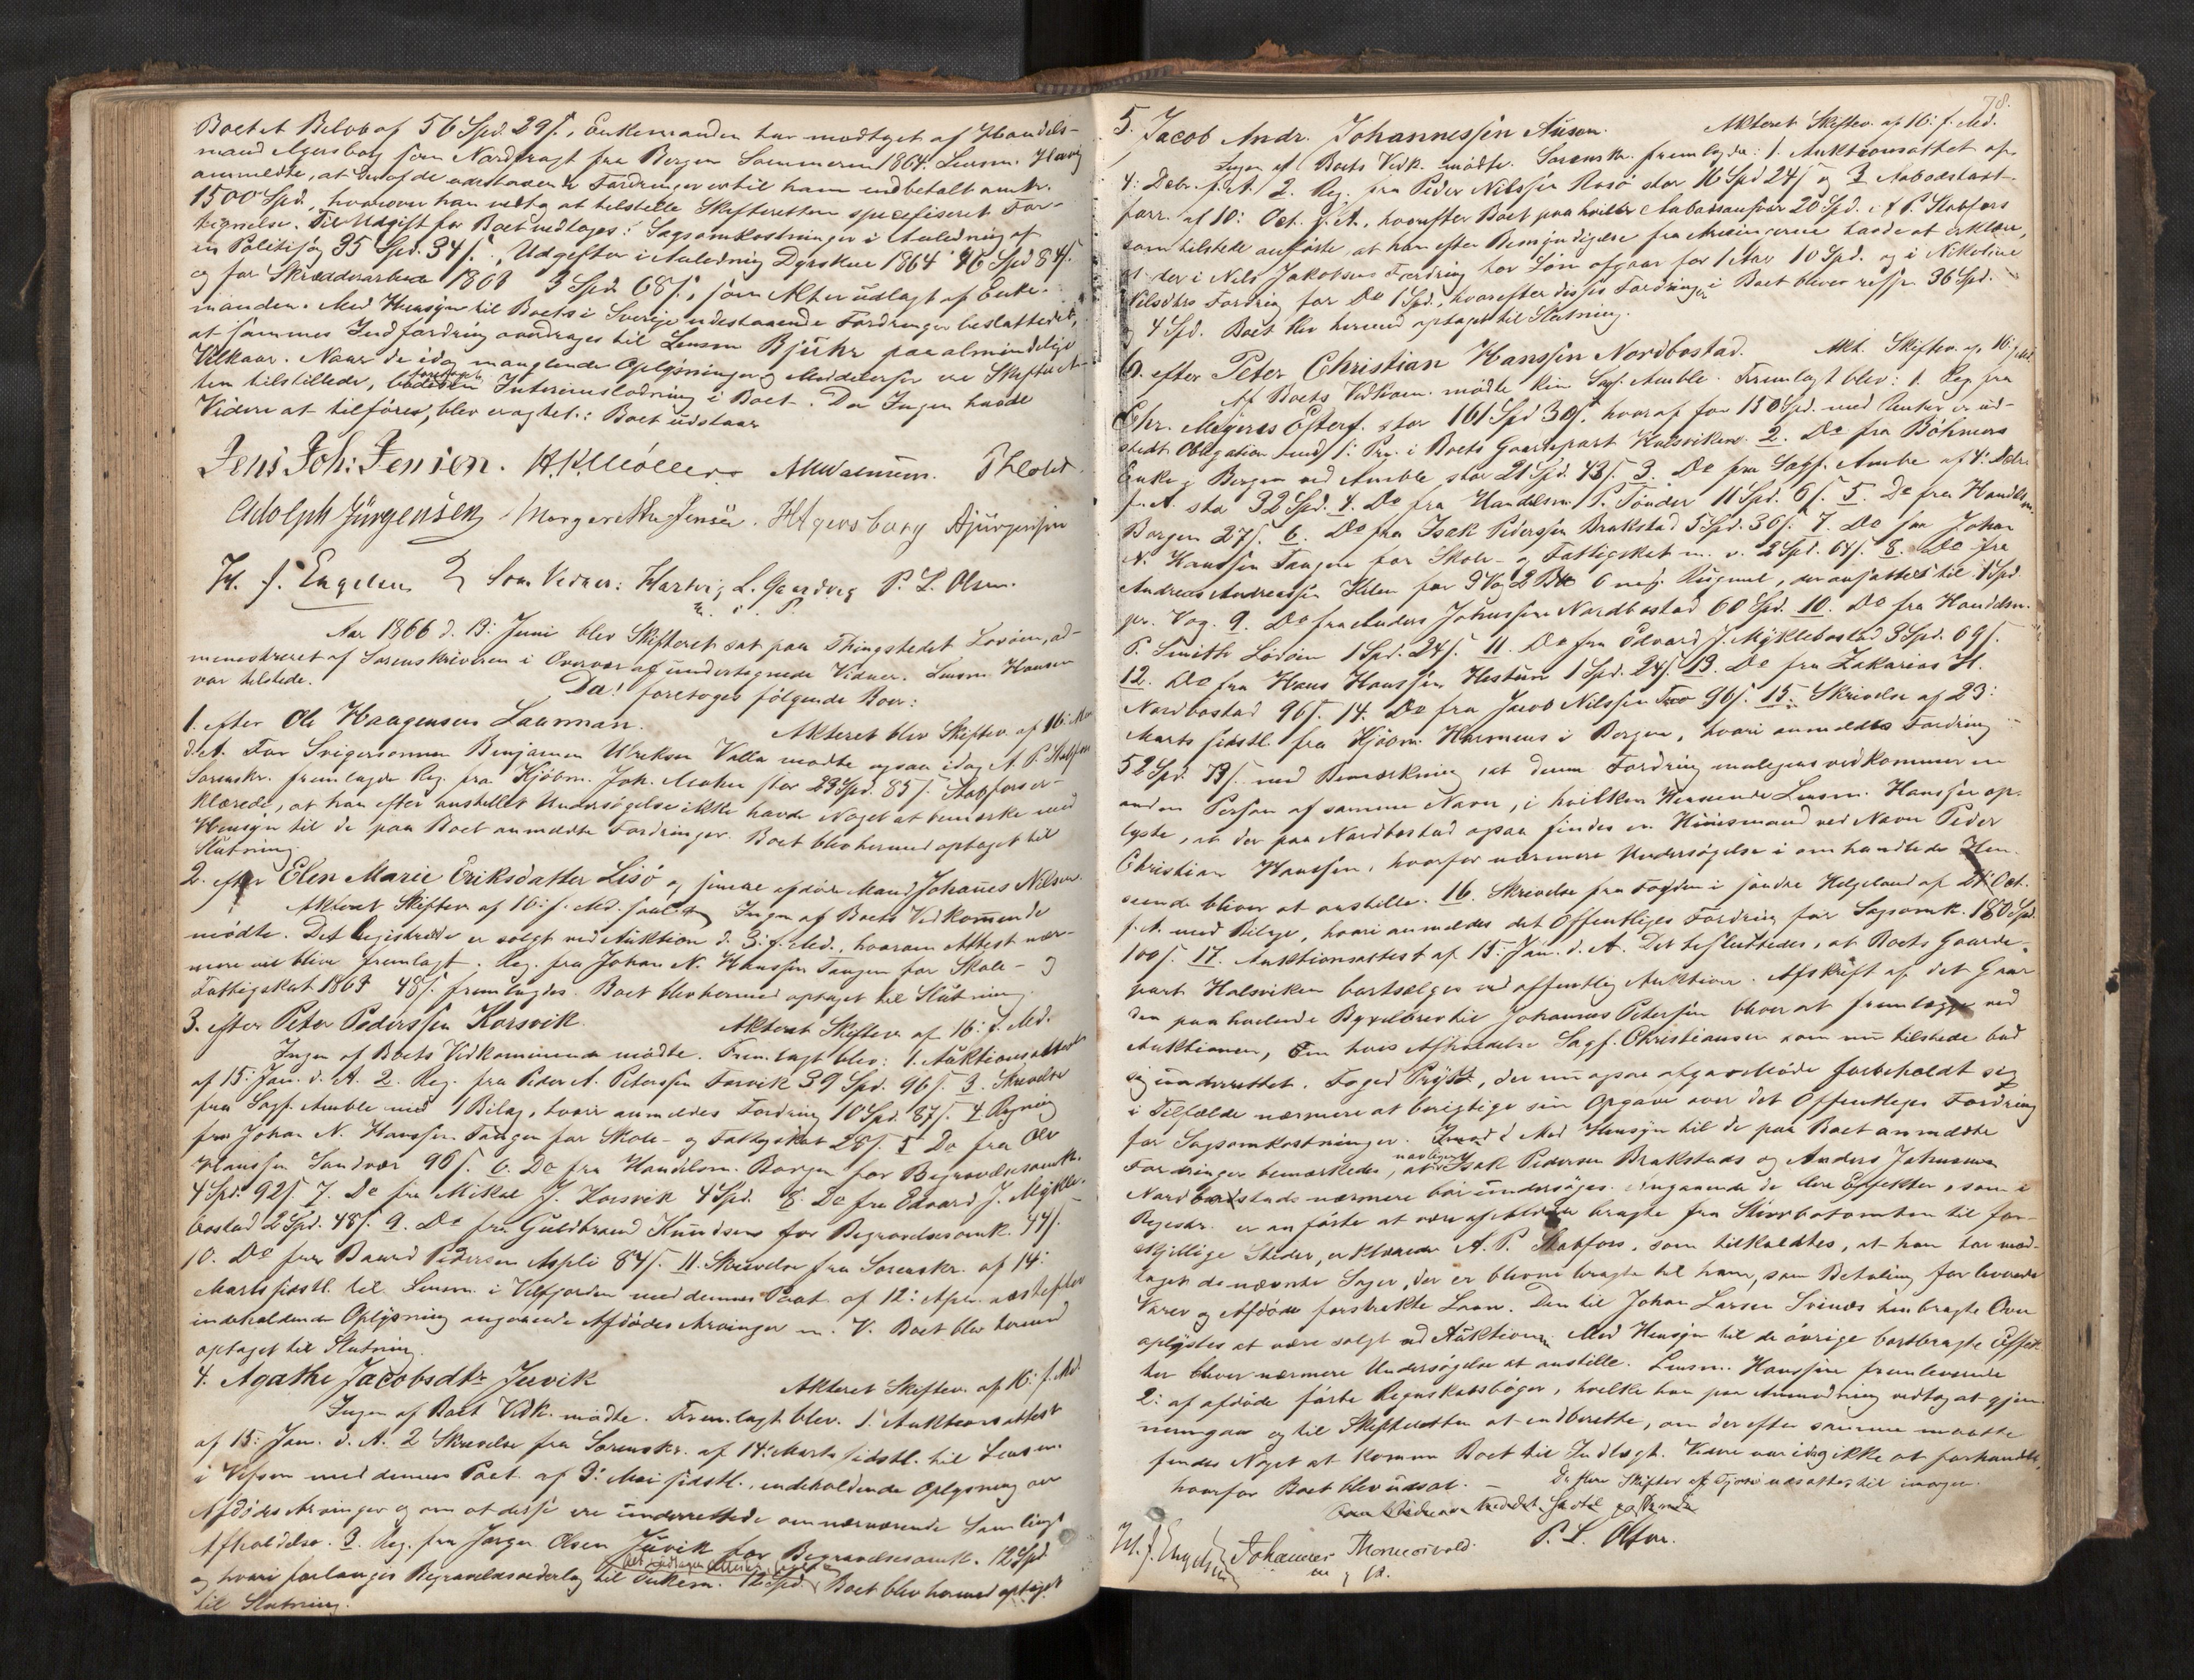 Boet et Beløb af 56 Spd. 29 s., Enkemanden har modtaget af Handels-
mand Agersborg som Nordfragt fra Bergen Sommeren 1864. Lensm. Havig
anmeldte, at der af de udestaaende Fordringer er til ham indbetalt omtr.
1500 Spd, hvorover han vedtog at tilstille Skifteretten specifiseret For-
tegnelse. Til Udgift for Boet vedtoges: Sagsomkostninger i Anledning af
en Politisag 35 Spd. 34 s., Udgifter i Anledning Dyrskue 1864 26 Spd 84 s.
og for Skrædderarbeide 1863 3 Spd. 68 s., som Alt er udlagt af Enke-
manden. Med Hensyn til Boets i Sverige udestaaende Fordringer besluttedes,
at sammes Indfordring overdrages til Lensm. Bjuhr paa almindelige
Vilkaar. Naar de idag manglende Oplysninger og Meddelelser ere Skifteret-
ten tilstillede, foretages Interimsudlodning i Boet. Da Ingen havde
Videre at tilføre, blev eragtet: Boet udstaar
Jens Joh: Jensen. H.K. Møller
Adolph Jürgensen Margrethe Jensen. H Agersborg A Jürgensen
H. J. Engelsen Som Vidner: Hartvig L. Gaardveg P. L. Olsen.
m. i. P.
Aar 1866 d. 13: Juni blev Skifteret sat paa Thingstedet Lovøen, ad-
ministreret af Sorenskriveren i Overvær af undertegnede Vidner. Lensm. Hansen
var tilstede. Da! foretoges følgende Boer:
1. efter Ole Haagensen Laaman. Akteret blev Skiftev. af 16: Mai
d. A. For Svigersønnen Benjamin Ulriksen Valla mødte ogsaa idag A. P. Stabfors
Sorenskr. fremlagde Reg. fra Kjøbm. Joh. Mohn stor 23 Spd. 85 s. Stabfors er-
klærede, at han efter anstillet Undersøgelse ikke havde Noget at bemærke med
Hensyn til de paa Boet anmeldte Fordringer. Boet blev hermed optaget til
Slutning.
2. efter Elen Marie Eriksdatter Lisø og hendes afdøde Mand Johannes Nilsen.
Akteret Skiftev. af 16: f. Md. Ingen af Boets Vedkommende
mødte. Det Registrerede er solgt ved Auktion d. 3: f. Md., hvorom Attest nær-
mere vil blive fremlagt. Reg. fra Johan N. Hanssen Tangen for Skole- og
Fattigskat 1863 48 s. fremlagdes. Boet blev hermed optaget til Slutning
3. efter Peter Pederssen Korsvik. Akteret Skiftev. af 16: f. Md.
Ingen af Boets Vedkommende mødte. Fremlagt blev: 1. Auktionsattest
af 15: Jan. d. A. 2. Reg. fra Peder A. Peterssen Forvik 39 Spd. 96 s. 3. Skrivelse
fra Sagf. Amble med 1 Bilag, hvori anmeldes Fordring 10 Spd. 87 s. 4. Regning
fra Johan N. Hanssen Tangen for Skole- og Fattigskat 28 s. 5. Do fra Ole
Hanssen Sandvær 96 s. 6. Do fra Handelsm. Borgen for Begravelsesomk.
4 Spd. 92 s. 7. Do fra Mikal J. Korsvik 4 Spd. 8. Do fra Edvard J. Mykle-
bostad 2 Spd. 48 s. 9. Do fra Guldbrand Knudsen for Begravelsesomk. 44 s.
10. Do fra Baard Pedersen Aspli 84 s. 11. Skrivelse fra Sorenskr. af 14:
Marts sidstl. til Lensm. i Velfjorden med dennes Paat. af 12: Apr. næstefter
indeholdende Oplysning angaaende Afdødes Arvinger m. V. Boet blev hermed
optaget til Slutning.
4. Agathe Jacobsdtr Juvik Akteret Skiftev. af 16: f. Md.
Ingen af Boet Vedk. mødte. Fremlagt blev. 1. Auktionsattest
af 15: Jan. d. A. 2 Skrivelse fra Sorenskr. af 14: Marts sidstl. til Lensm.
i Vefsen med dennes Paat. af 3: Mai sidstl., indeholdende Oplysning om
Afdødes Arvinger og om at disse ere underrettede om nærværende Samlings
Afholdelse. 3. Reg. fra Jørgen Olsen Juvik for Begravelsesomk. 12 Spd
og hvori forlanges Begravelsesvederlag til Enkem. 12 Spd. Boet blev hermed optaget
til Slutning.
78.
5. Jacob Andr. Johannessen Ausen. Akteret Skiftev. af 16: f. Md.
Ingen af Boets Vedk. mødte. Sorenskr. fremlagde: 1. Auktionsattest af
4: Debr. f. A. 2. Reg. fra Peder Nilssen Rosø stor 16 Spd 24 s og 3 Aabodstaxt-
forr. af 10: Oct. f. A., hvorefter Boet paahviler Aabodsansvar 20 Spd. A P. Stabfors
som tilstede anførte at han efter Bemyndigelse fra Arvingerne havde at erklære,
at der i Nils Jakobsens Fordring for Løn afgaar for 1 Aar 10 Spd. og i Nikoline
Nilsdtrs Fordring for Do 1 Spd., hvorefter disses Fordringer i Boet bliver resp. 36 Spd.
og 4 Spd. Boet blev hermed optaget til Slutning.
6. efter Peter Christian Hanssen Nordbostad. Akt. Skiftev. af 16: f. Md.
Af Boets Vedkom. mødte kun Sagf. Amble. Fremlagt blev: 1. Reg fra
Chr. Meyers Efterf. stor 161 Spd 30 s. hvoraf for 150 Spd. med Renter er ud-
stedt Obligation med 1: Pr. i Boets Gaardepart Halsviken. 2. Do fra Böhmers
Enke i Bergen ved Amble stor 21 Spd. 43 s. 3. Do fra Sagf. Amble af 4: Debr.
f. A. stor 32 Spd. 4. Do fra Handelsm. P. Tønder 11 Spd. 6 s. 5. Do fra Handelsm.
Borgen 27 s. 6. Do fra Isak Pederssen Brakstad 5 Spd. 36 s. 7. Do fra Johan
N. Hanssen Tangen for Skole- og Fattigskat m. v. 2 Spd. 64 s. 8. Do fra
Andreas Andreassen Hilen for 3 Vog 2 B 6 Rugmel, der ansattes til 1 Spd.
pr. Vog. 9. Do fra Anders Johnssen Nordbostad 60 Spd. 10. Do fra Handelsm.
P. Smith Lovøen 1 Spd. 24 s. 11. Do fra Edvard J. Myklebostad 3 Spd. 69 s.
12. Do fra Hans Hanssen Hestun 1 Spd. 24 s. 13. Do fra Zakarias H.
Nordbostad 96 s. 14. Do fra Jacob Nilssen Tro 96 s. 15. Skrivelse af 23:
Marts sidstl. fra Kjøbm. Harmens i Bergen, hvori anmeldtes Fordring
52 Spd. 73 s. med Bemærkning, at denne Fordring muligens vedkommer en
anden Person af samme Navn, i hvilken Henseende Lensm. Hanssen op-
lyste, at der paa Nordbostad ogsaa findes en Huusmand ved Navn Peder
Christian Hanssen, hvorfor nærmere Undersøgelse i omhandlede Hen-
seende bliver at anstille. 16. Skrivelse fra Fogden i søndre Helgeland af 21: Oct.
f. A. med Bilag, hvori anmeldes det Offentliges Fordring for Sagsomk. 180 Spd.
100 s. 17. Auktionsattest af 15: Jan. d. A. Det besluttedes, at Boets Gaarde-
part Halsviken bortsælges ved offentlig Auktion. Afskrift af det Gaar
den paahvilende Bygselbrev til Johannes Petersen bliver at fremlægge ved
Auktionen, om hvis Afholdelse Sagf. Christiansen som nu tilstede bad
sig underrettet. Foged Prytz, der nu ogsaa afgav Møde forbeholdt sig
i Tilfælde nærmere at berigtige sin Opgave over det Offentliges Fordring
for Sagsomkostninger. Med Hensyn til de paa Boet anmeldte
Fordringer bemærkedes, at navnligen Isak Pedersen Brakstads og Anders Johnsens
Nordbostads nærmere bør undersøges. Angaaende de flere Effekter, som i
Regestr. er anførte at være af Afdøde bragte fra til for-
skjellige Steder, erklærede A. P. Stabfors, som tilkaldtes, at han har mod-
taget de nævnte Sager, der er blevne bragte til ham, som Betaling for leverede
Varer og Afdøde forstrakte Laan. Den til Johan Larsen Svinæs henbragte Ovn
oplystes at være solgt ved Auktionen. Med Hensyn til de øvrige bortbragte Effek-
ter bliver nærmere Undersøgelse at anstille. Lensm. Hanssen fremleverede
2: af afdøde førte Regnskabsbøger, hvilke han paa Anmodning vedtog at gjen-
nemgaa og til Skifteretten at indberette, om der efter samme maatte
findes Noget at komme Boet til Indtægt. Videre var idag ikke at forhandle,
hvorfor Boet blev udsat. De flere Skifter af Tjøtta udsattes til imorgen.
H. J. Engelsen Johannes Thomesvold. P. L. Olsen.
m. i. P.